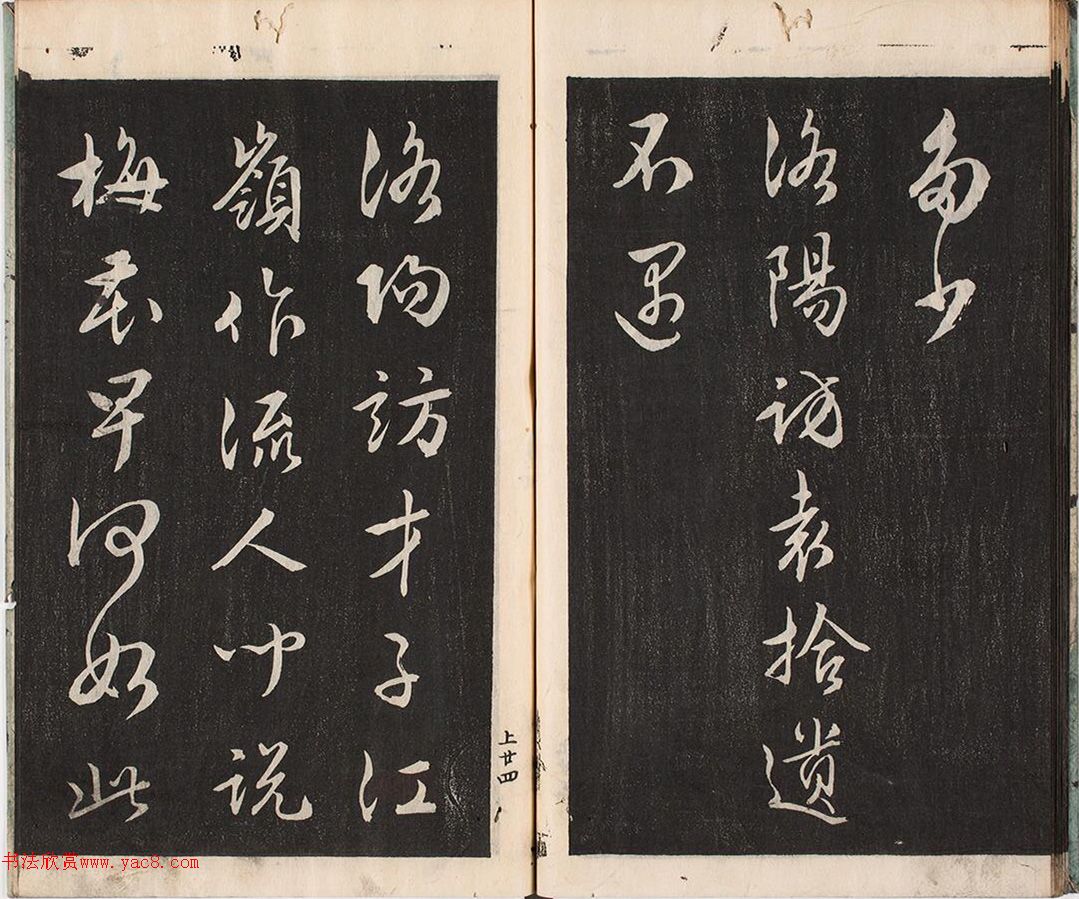 多少
洛陽訪袁拾遺
不遇
洛陽訪才子江
嶺作流人聞說
梅花早何如此
上廿四
书法欣赏www.yac8.com